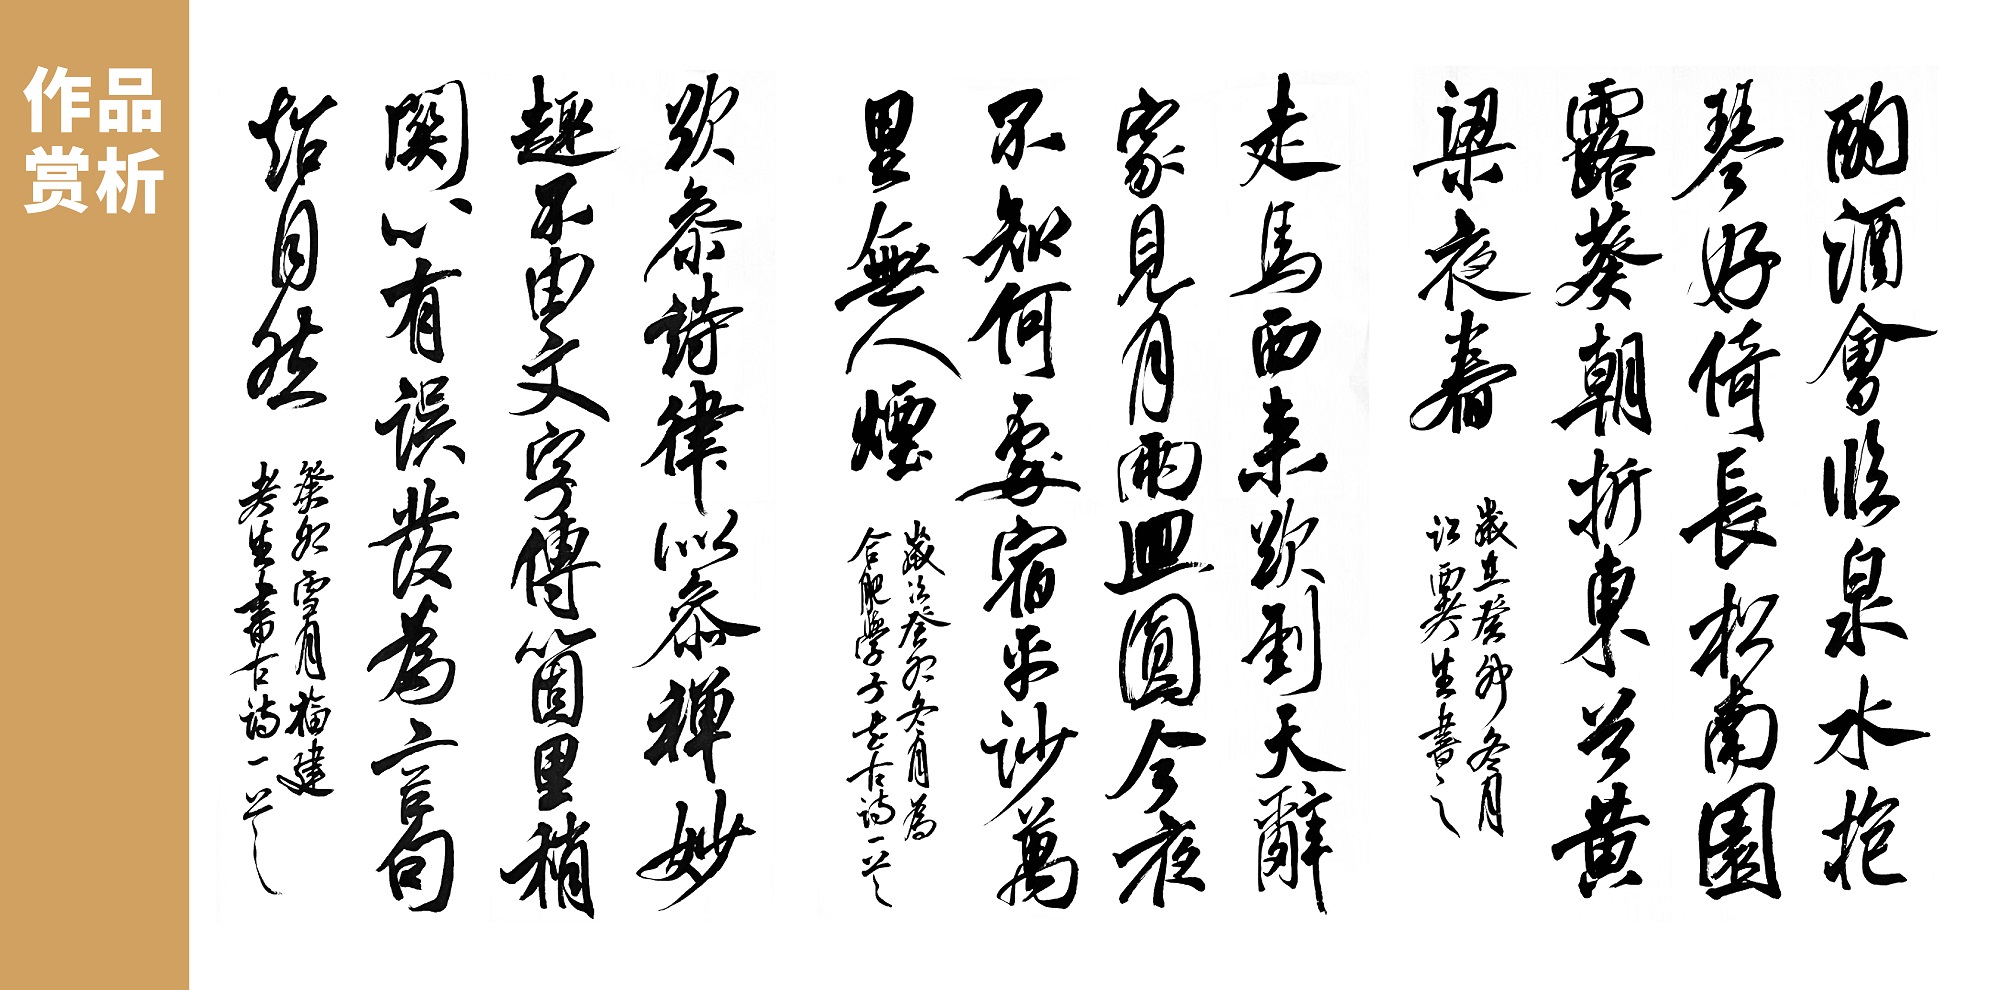 作品
赏析
酌酒會臨泉水抱
琴好倚長松南園
露葵朝折東谷黄
梁夜舂
歲在癸卯冬月
江西吴生書之
走馬西来欲到天辭
家見月兩回圓今夜
不知何處宿平沙萬
里無人煙
歲次癸卯冬月為
合肥學子书古詩一首
欲參詩律似參禪妙
趣不由文字傳箇里稍
関心有误發為言句
超自然
癸卯雪月福建
考生書古詩一首